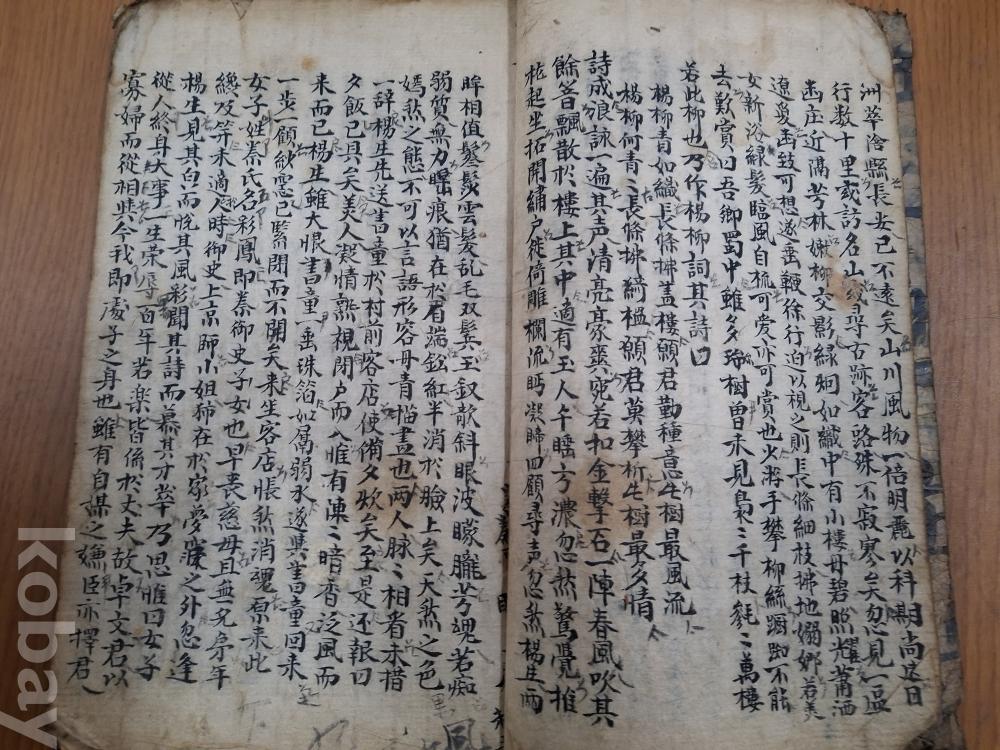 洲華陰縣長安已不遠矣山川風物一倍明麗以科期尚遠日
行數十里或訪名山或尋古跡客路殊不寂寥矣忽見一區
幽庄近隔芳林嫩柳交影緑烟如織中有小樓丹碧照耀蕭洒
遼夐幽致可想遂垂鞭徐行迫以視之則長條細枝拂地嫋娜若美
女新浴緑髮臨風自梳可愛亦可賞也少游手攀柳絲躕踟不能
去歎賞曰吾鄉蜀中雖多珍樹曾未見裊〻千枝毿〻萬樓
若此柳也乃作楊柳詞其詩曰
楊柳青如織長條拂畵樓願君勤種意此樹最風流
楊柳何青〻長條拂綺楹願君莫攀折此樹最多情
詩成浪詠一遍其声清亮豪爽宛若扣金擊石一陣春風吹其
餘音飄散於樓上其中適有玉人午睡方濃忽然驚覺推
枕起坐拓開繡户徙倚雕欄流眄凝睇四顧尋声忽然楊生兩
眸相值鬖髿雲髮乱毛双鬢玉釵欹斜眼波朦朧芳魂若痴
弱質無力睡痕猶在於眉端鉛紅半消於臉上矣天然之色
嫣然之態不可以言語形容丹青描畵也两人脉〻相看未措
一辞楊生先送書童於村前客店使備夕炊矣至是还報曰
夕飯已具矣美人凝情熟視閉户而入惟有陣〻暗香泛風而
来而已楊生雖大恨書童一垂珠箔如隔弱水遂與書童回来
一步一顧紗窓已緊閉而不開矣来坐客店悵然消魂原来此
女子姓秦氏名彩鳳即秦御史子女也早丧慈母且無兄弟年
纔及笄未適人時御史上京師小姐獨在於家夢寐之外忽逢
楊生見其皃而悅其風彩聞其詩而慕其才華乃思惟曰女子
從人終身大事一生荣辱百年苦楽皆係於丈夫故卓文君以
寡婦而從相如今我即處子之身也雖有自謀之嫌臣亦擇君
kobay